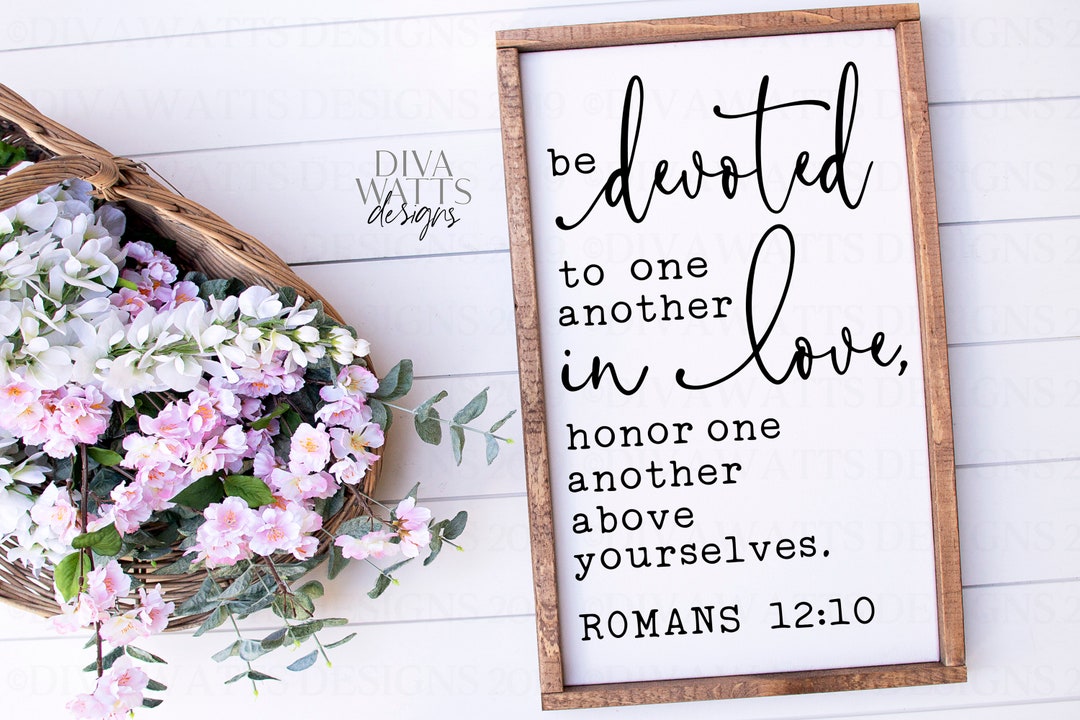 ©DIVA WATTS DESIGNS 2019
DIVA
WATTS
designs
be devoted
to one
another
in love,
honor one
another
above
yourselves.
ROMANS 12:10